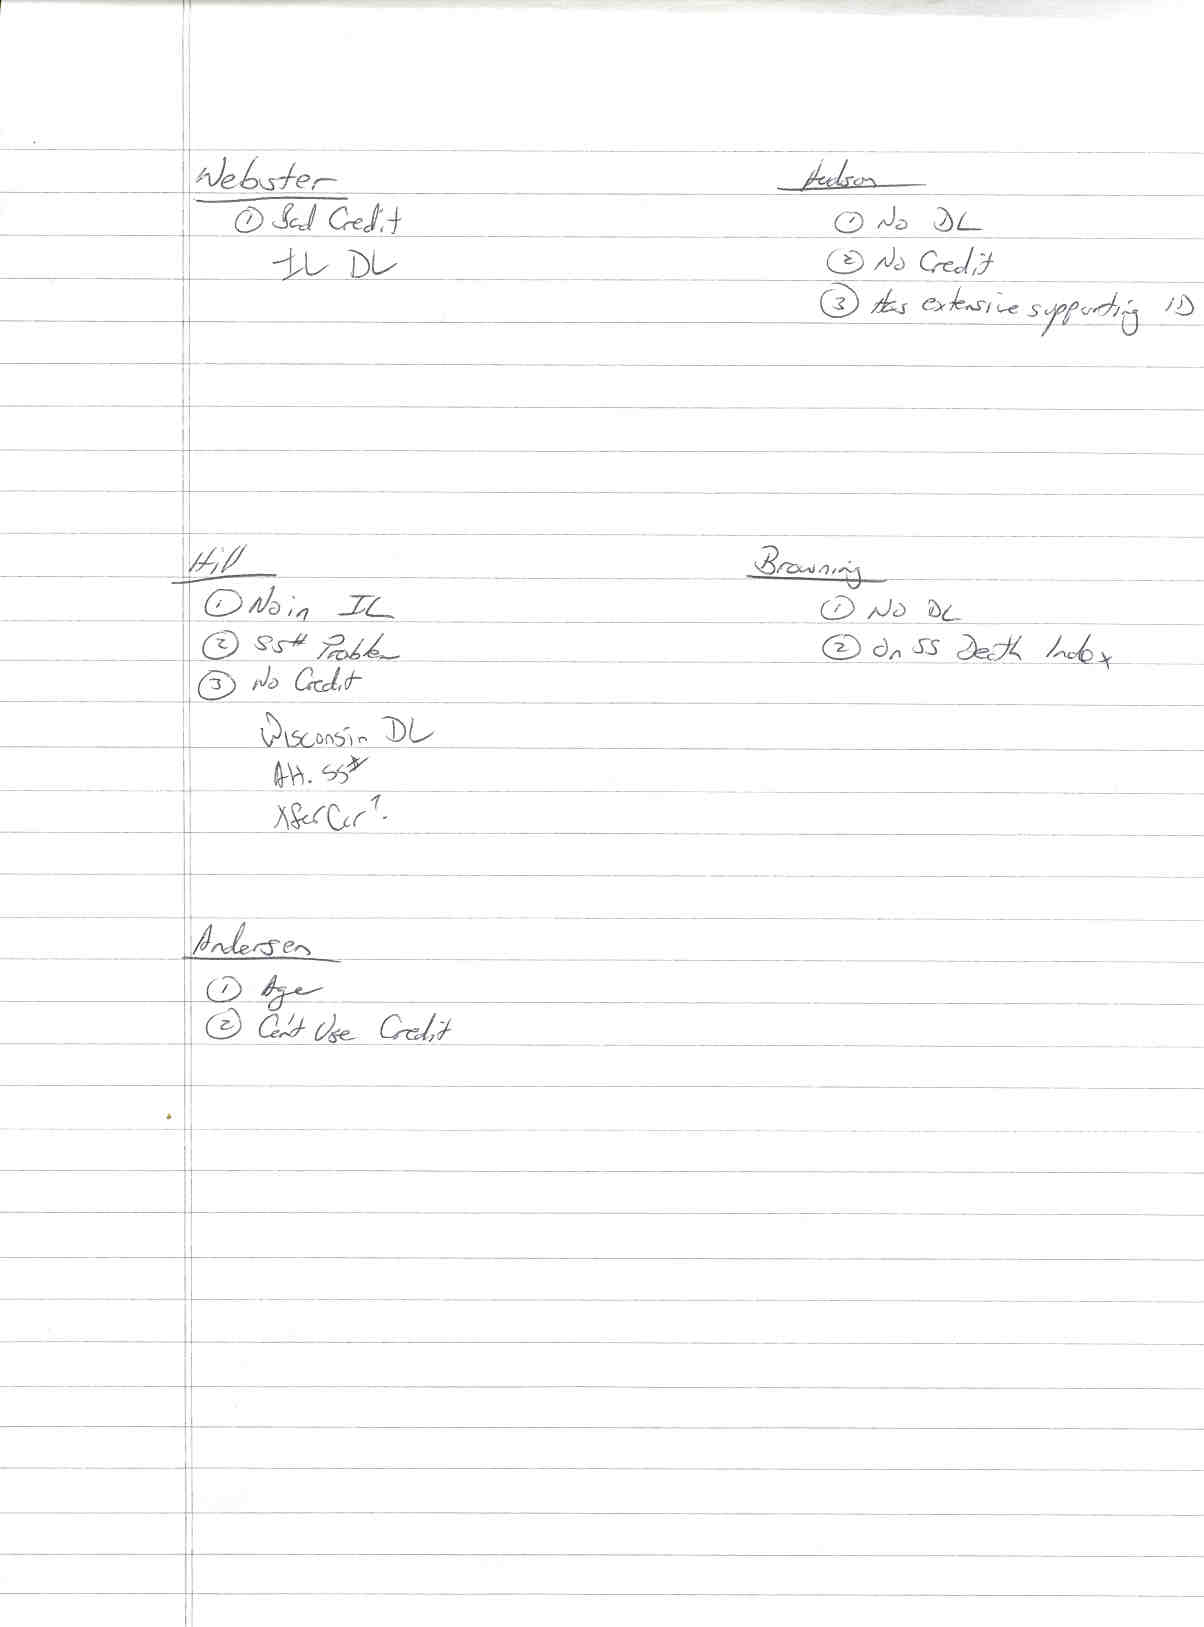 Webster
① Bad Credit
IL DL
Hudson
① No DL
② No Credit
③ Has extensive supporting ID
Hill
① No in IL
② SS# Problem
③ No Credit
Wisconsin DL
Alt. SS#
Xfer Car?
Browning
① No DL
② On SS Death Index
Andersen
① Age
② Can't Use Credit